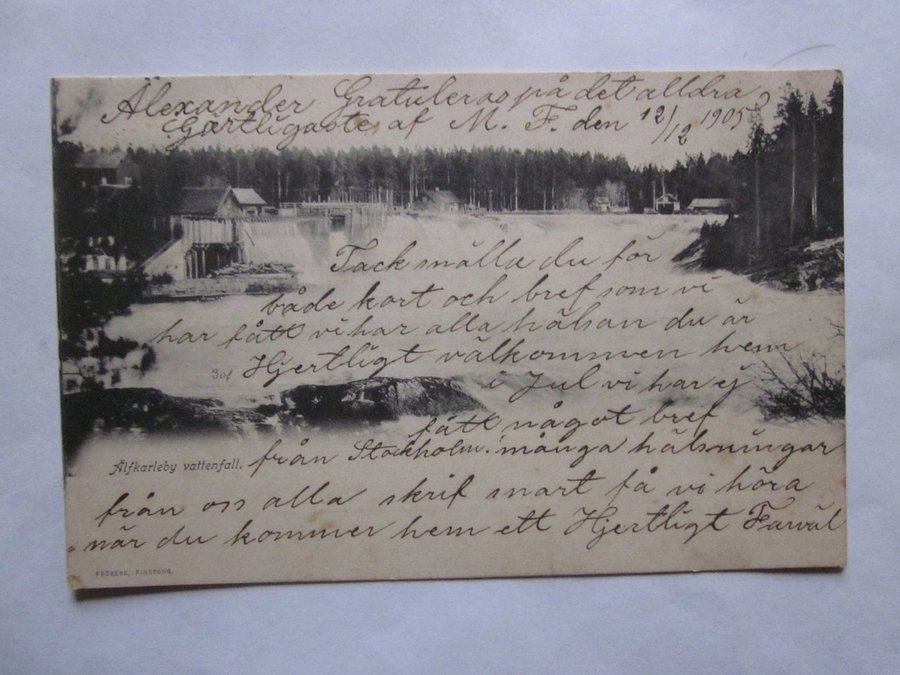 Älexander Gratuleras på det alldra
Gjärtligaste af M. F. den 12/12 1905
Tack snälla du för
både kort och bref som vi
har fått vi har alla hälsan du är
Hjertligt välkommen hem
i Jul vi har ej
fått något bref
från Stockholm. många hälsningar
från oss alla skrif snart få vi höra
när du kommer hem ett Hjertligt Farväl
Älfkarleby vattenfall.
FRÖBERG, FINSPONG.